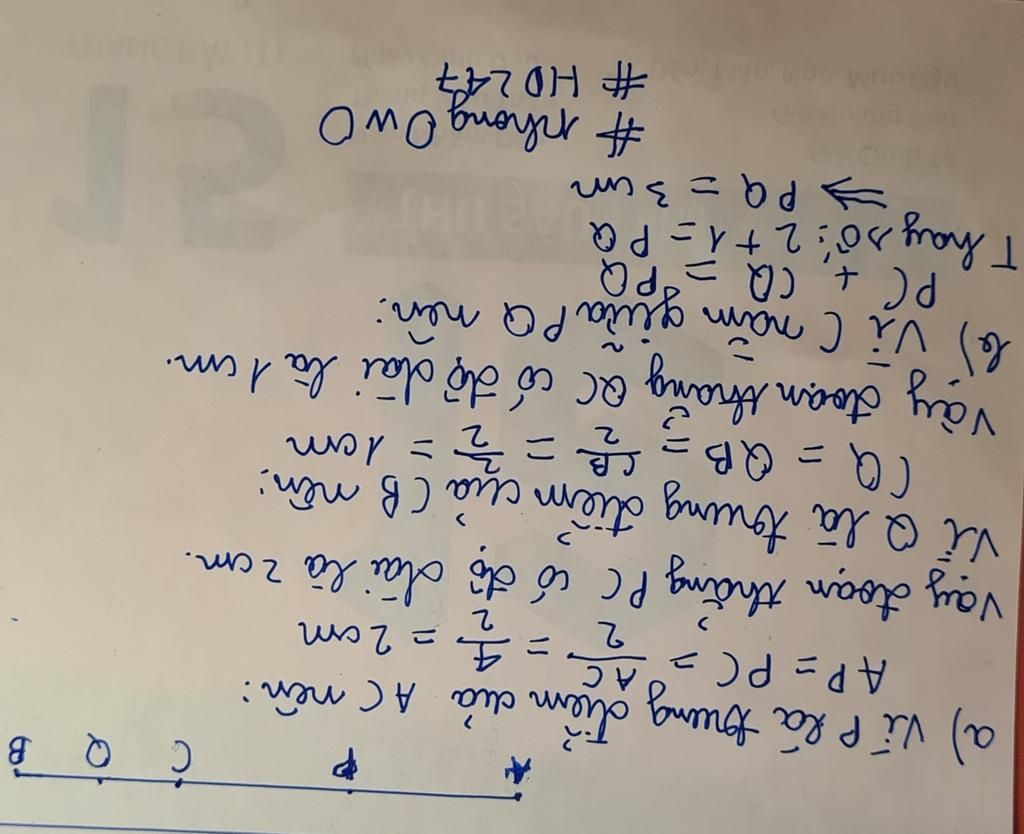 A P C Q B
a) Vì P là trung điểm của AC nên:
AP = PC = AC/2 = 4/2 = 2cm
Vậy đoạn thẳng PC có độ dài là 2cm.
Vì Q là trung điểm của CB nên:
CQ = QB = CB/2 = 2/2 = 1cm
Vậy đoạn thẳng QC có độ dài là 1cm.
b) Vì C nằm giữa PQ nên:
PC + CQ = PQ
Thay số: 2 + 1 = PQ
=> PQ = 3cm
# nhong OwO
# HD247